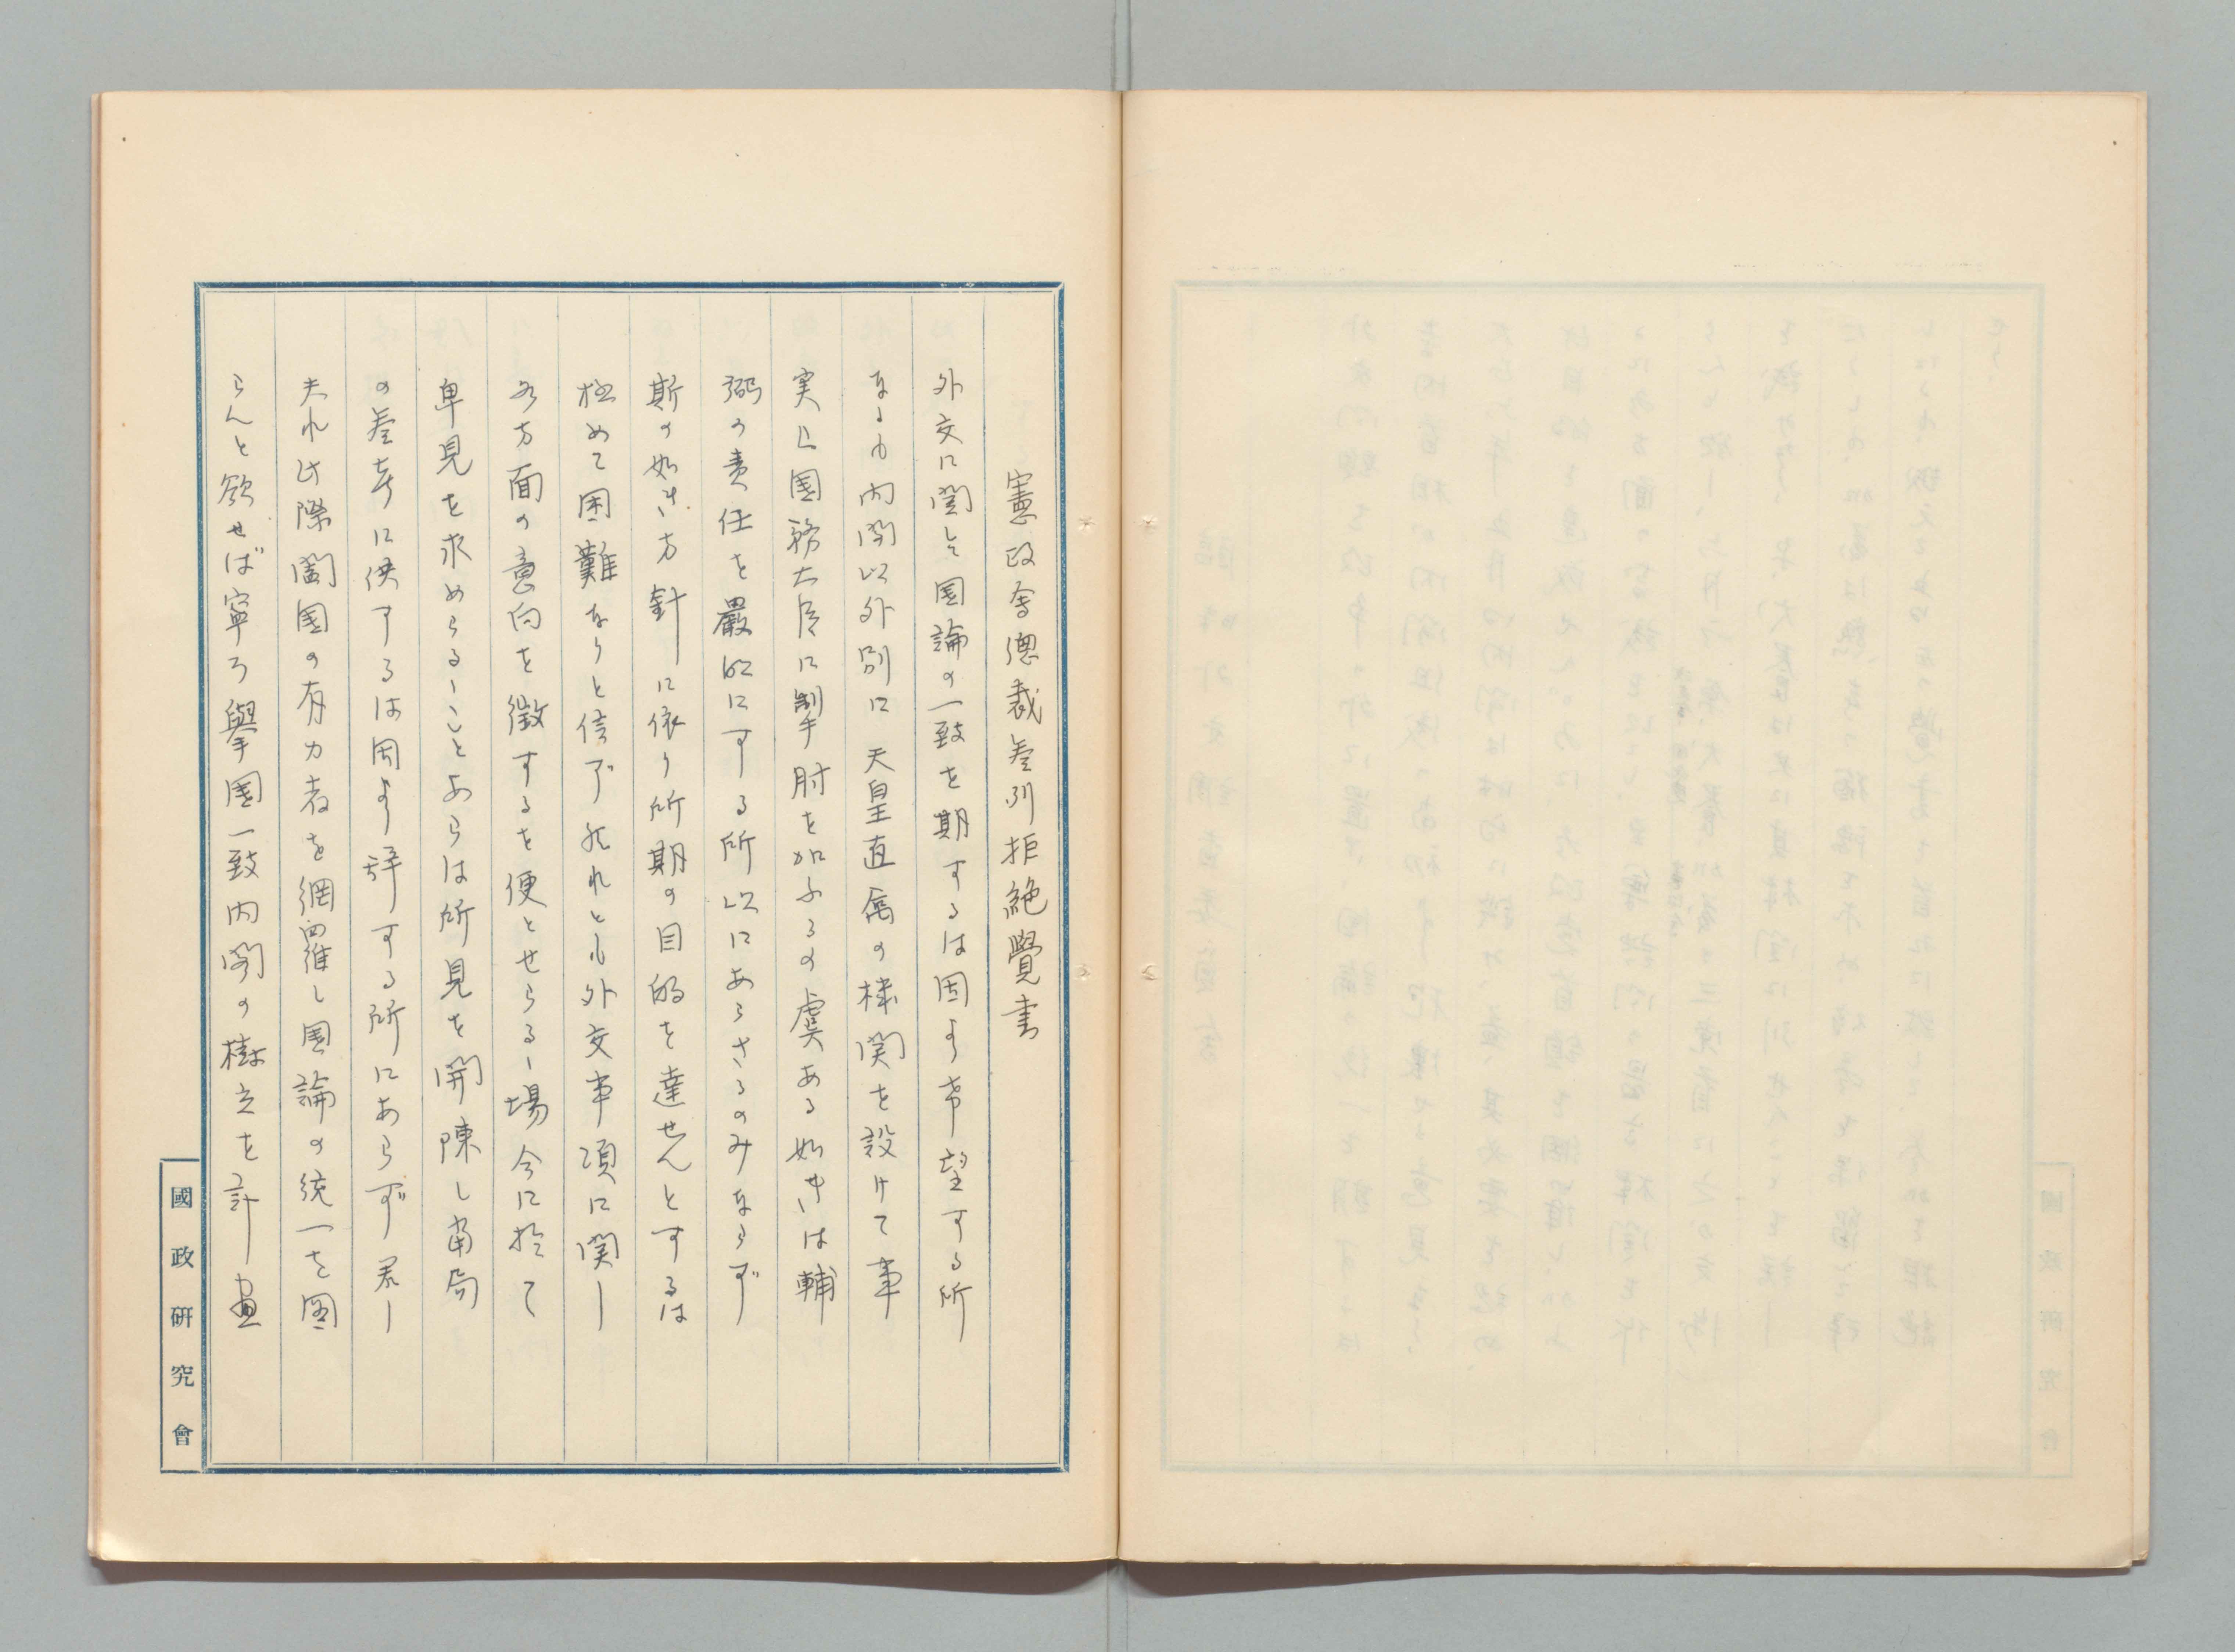 憲政会總裁参列拒絶覺書
外交に関して国論の一致を期するは固より希望する所
なるも内閣以外別に 天皇直属の機関を設けて事
実上国務大臣に掣肘を加ふるの虞ある如きは輔
弼の責任を嚴明にする所以にあらさるのみならず
斯の如き方針に依り所期の目的を達せんとするは
極めて困難なりと信ず 然れとも外交事項に関し
各方面の意向を徴するを便とせらるゝ場合に於て
卑見を求めらるゝことあらは所見を開陳し當局
の参考に供するは固より辞する所にあらず 若し
夫れ此際闔国の有力者を網羅し国論の統一を図
らんと欲せば寧ろ擧国一致内閣の樹立を計画
國政研究會